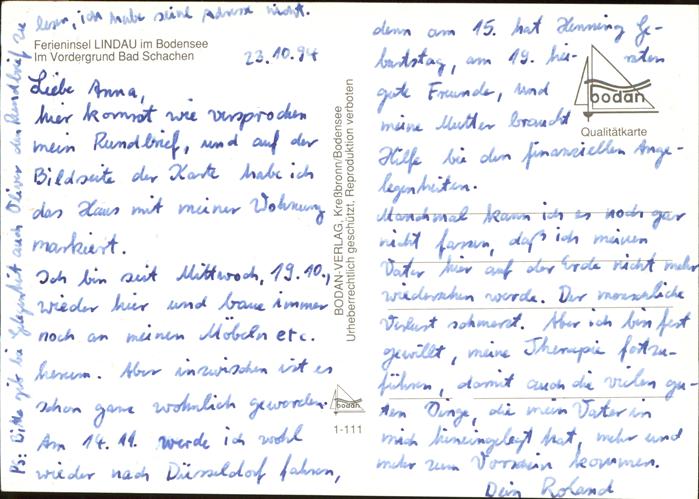 Ferieninsel LINDAU im Bodensee
Im Vordergrund Bad Schachen
23.10.94
Liebe Anna,
hier kommt wie versprochen
mein Rundbrief, und auf der
Bildseite der Karte habe ich
das Haus mit meiner Wohnung
markiert.
Ich bin seit Mittwoch, 19.10.,
wieder hier und baue immer
noch an meinen Möbeln etc.
herum. Aber inzwischen ist es
schon ganz wohnlich geworden.
Am 14.11. werde ich wohl
wieder nach Düsseldorf fahren,
denn am 15. hat Henning Ge-
burtstag, am 19. hei- raten
gute Freunde, und
meine Mutter braucht
Hilfe bei den finanziellen Ange-
legenheiten.
Manchmal kann ich es noch gar
nicht fassen, daß ich meinen
Vater hier auf der Erde nicht mehr
wiedersehen werde. Der menschliche
Verlust schmerzt. Aber ich bin fest
gewillt, meine Therapie fortzu-
führen, damit auch die vielen gu-
ten Dinge, die mein Vater in
mich hineingelegt hat, mehr und
mehr zum Vorschein kommen.
Dein Roland
PS: Bitte gib bei Gelegenheit auch Oliver den Rundbrief zu
lesen, ich habe seine Adresse nicht.
BODAN-VERLAG, Kreßbronn/Bodensee
Urheberrechtlich geschützt, Reproduktion verboten
bodan
1-111
bodan
Qualitätkarte